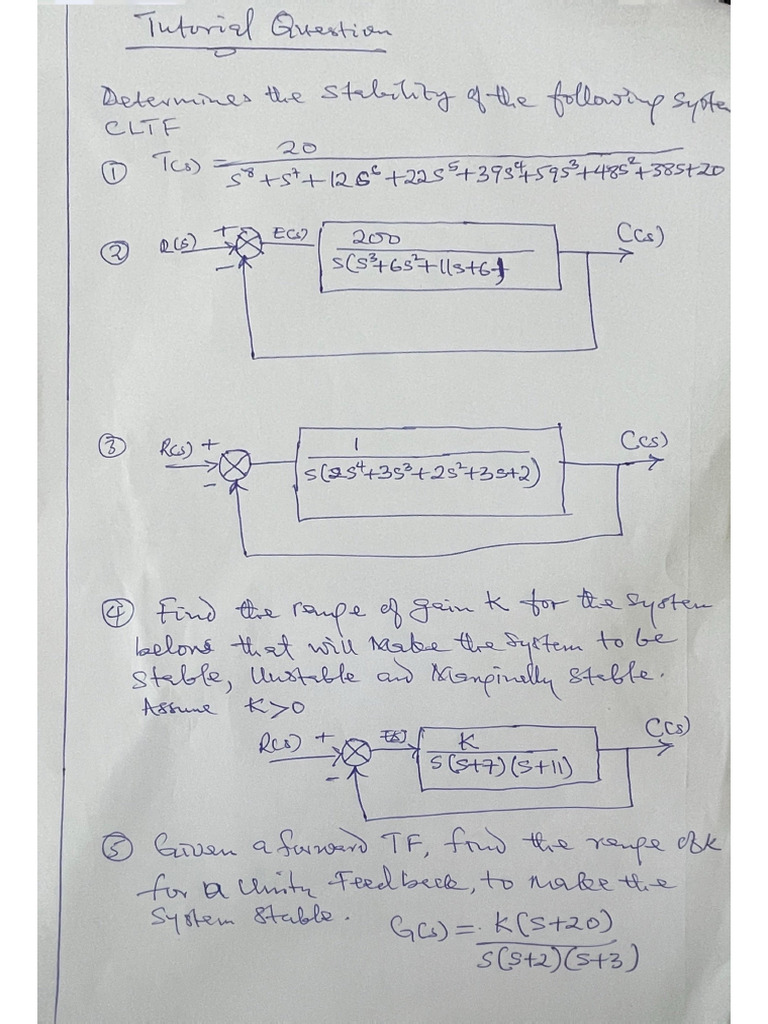 Tutorial Question
Determines the Stability of the following Syste
CLTF
① T(s) = 20 / s⁸+s⁷+12s⁶+22s⁵+39s⁴+59s³+48s²+38s+20
② R(s) + - E(s) 200 / s(s³+6s²+11s+6) C(s)
③ R(s) + - 1 / s(2s⁴+3s³+2s²+3s+2) C(s)
④ Find the range of gain K for the System
belons that will Make the System to be
Stable, Unstable and Marginally Stable.
Assume K>0
R(s) + - E(s) K / s(s+7)(s+11) C(s)
⑤ Given a forward TF, find the range of K
for a Unity Feedback, to make the
System Stable.
G(s) = K(s+20) / s(s+2)(s+3)